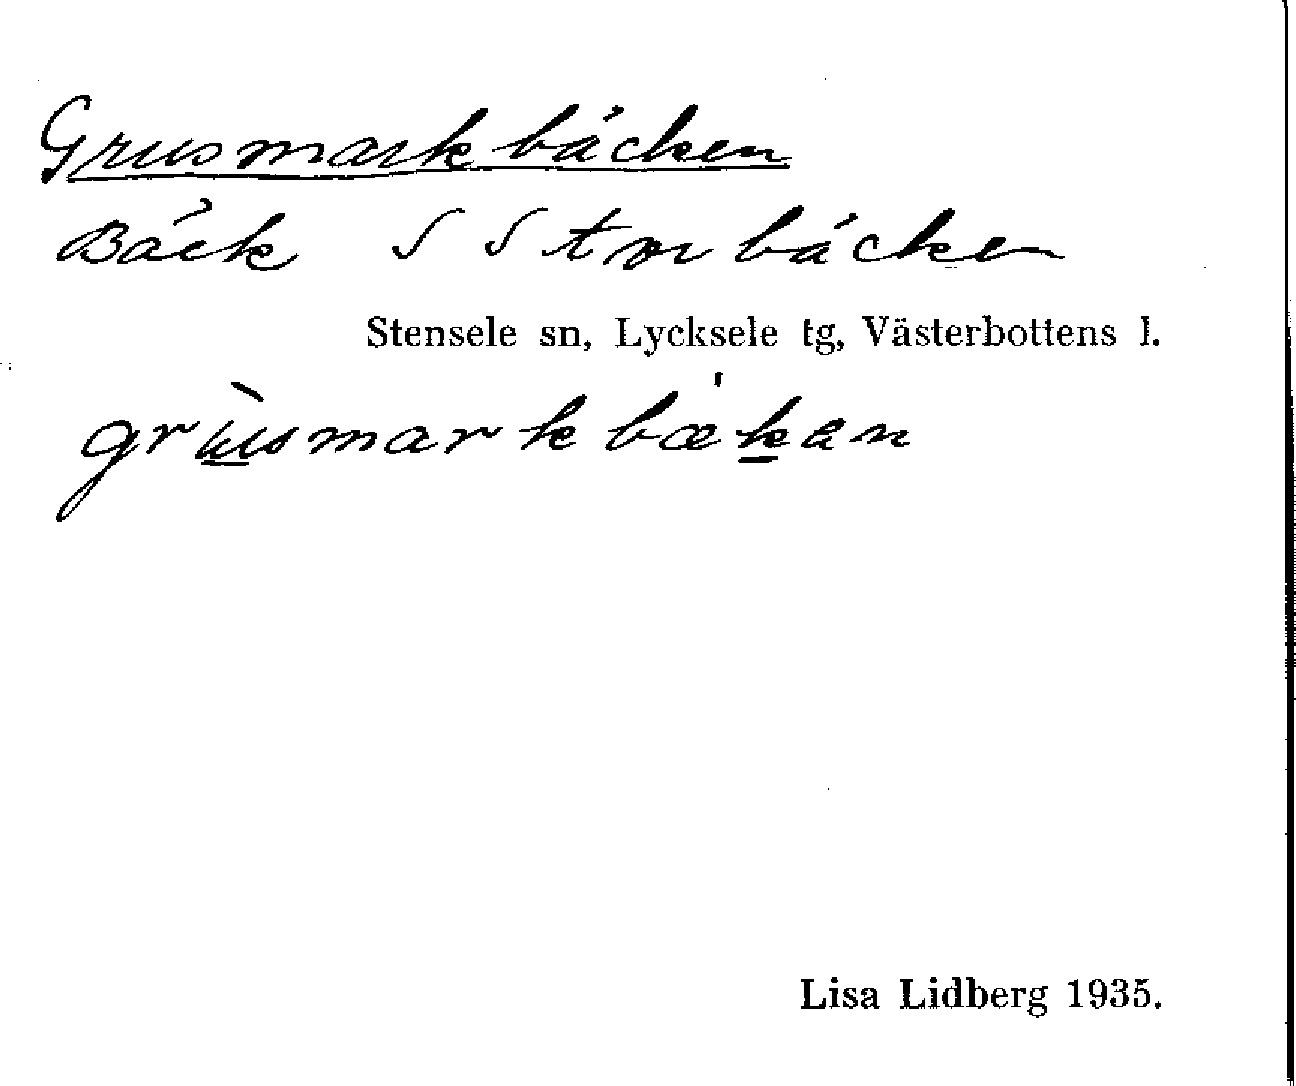 Grusmarkbäcken
Bäck S Stor bäcken
Stensele sn, Lycksele tg, Västerbottens l.
grù̱smarkbæ'ḵan
Lisa Lidberg 1935.